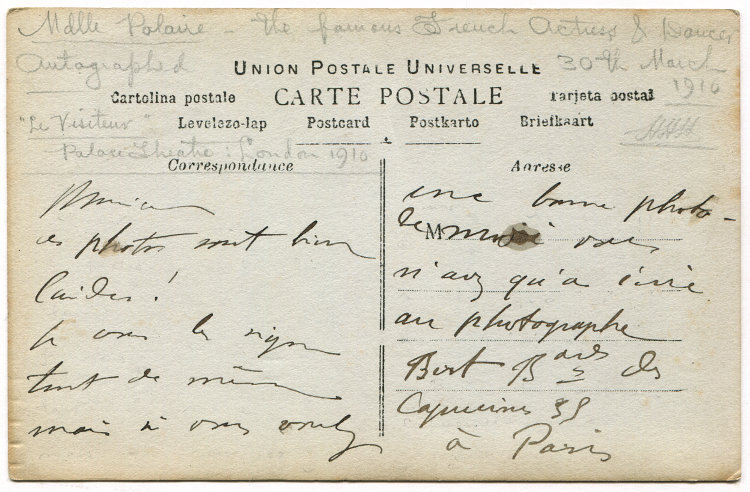 Mdlle Polaire - the famous French Actress & Dancer
Autographed
30th March
1910
UNION POSTALE UNIVERSELLE
Cartolina postale CARTE POSTALE Tarjeta postal
"Le Visiteur" Levelezo-lap Postcard Postkarto Briefkaart
Palace Theatre: London 1910
Correspondance
Monsieur
ces photos sont bien
laides!
je vous les signe
tout de même
mais si vous voulez
Adresse
une bonne photo-
de M moi vous
n'avez qu'a écrire
au photographe
Bert Bard des
Capucines 35
à Paris